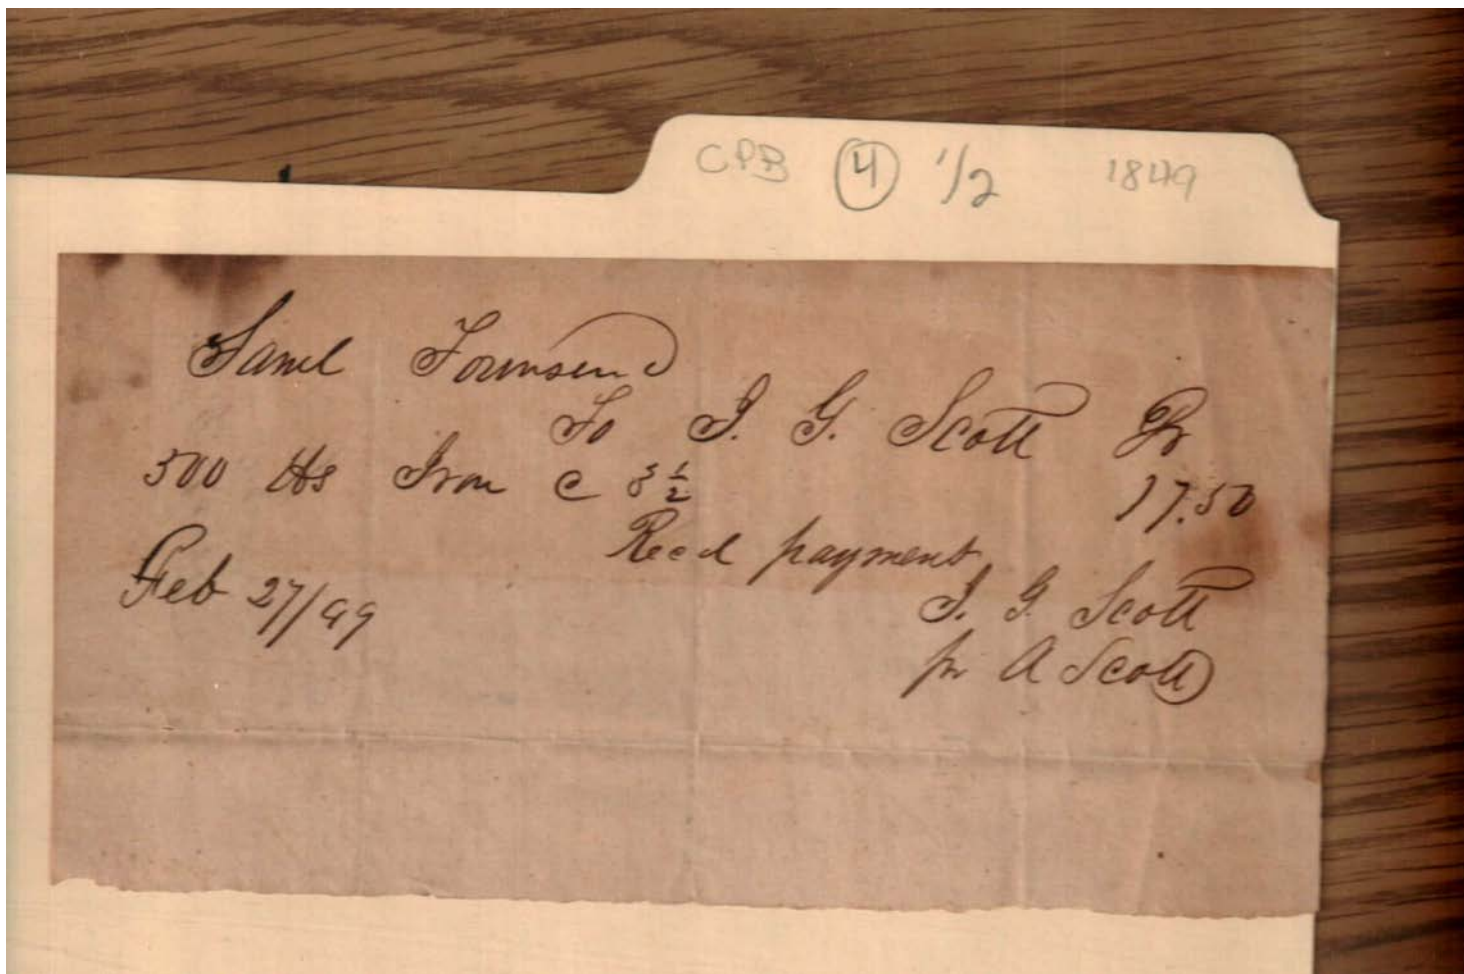 CPB 4 1/2 1849
Saml Townsend
To I. G. Scott Dr
500 lbs Iron @ 3 1/2 17.50
Recd payment
Feb 27/49
I. G. Scott
pr A Scott